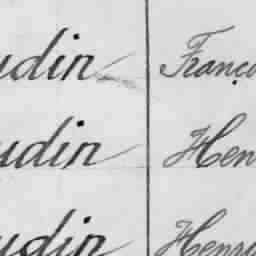 udin Franço
udin Hen
udin Henr